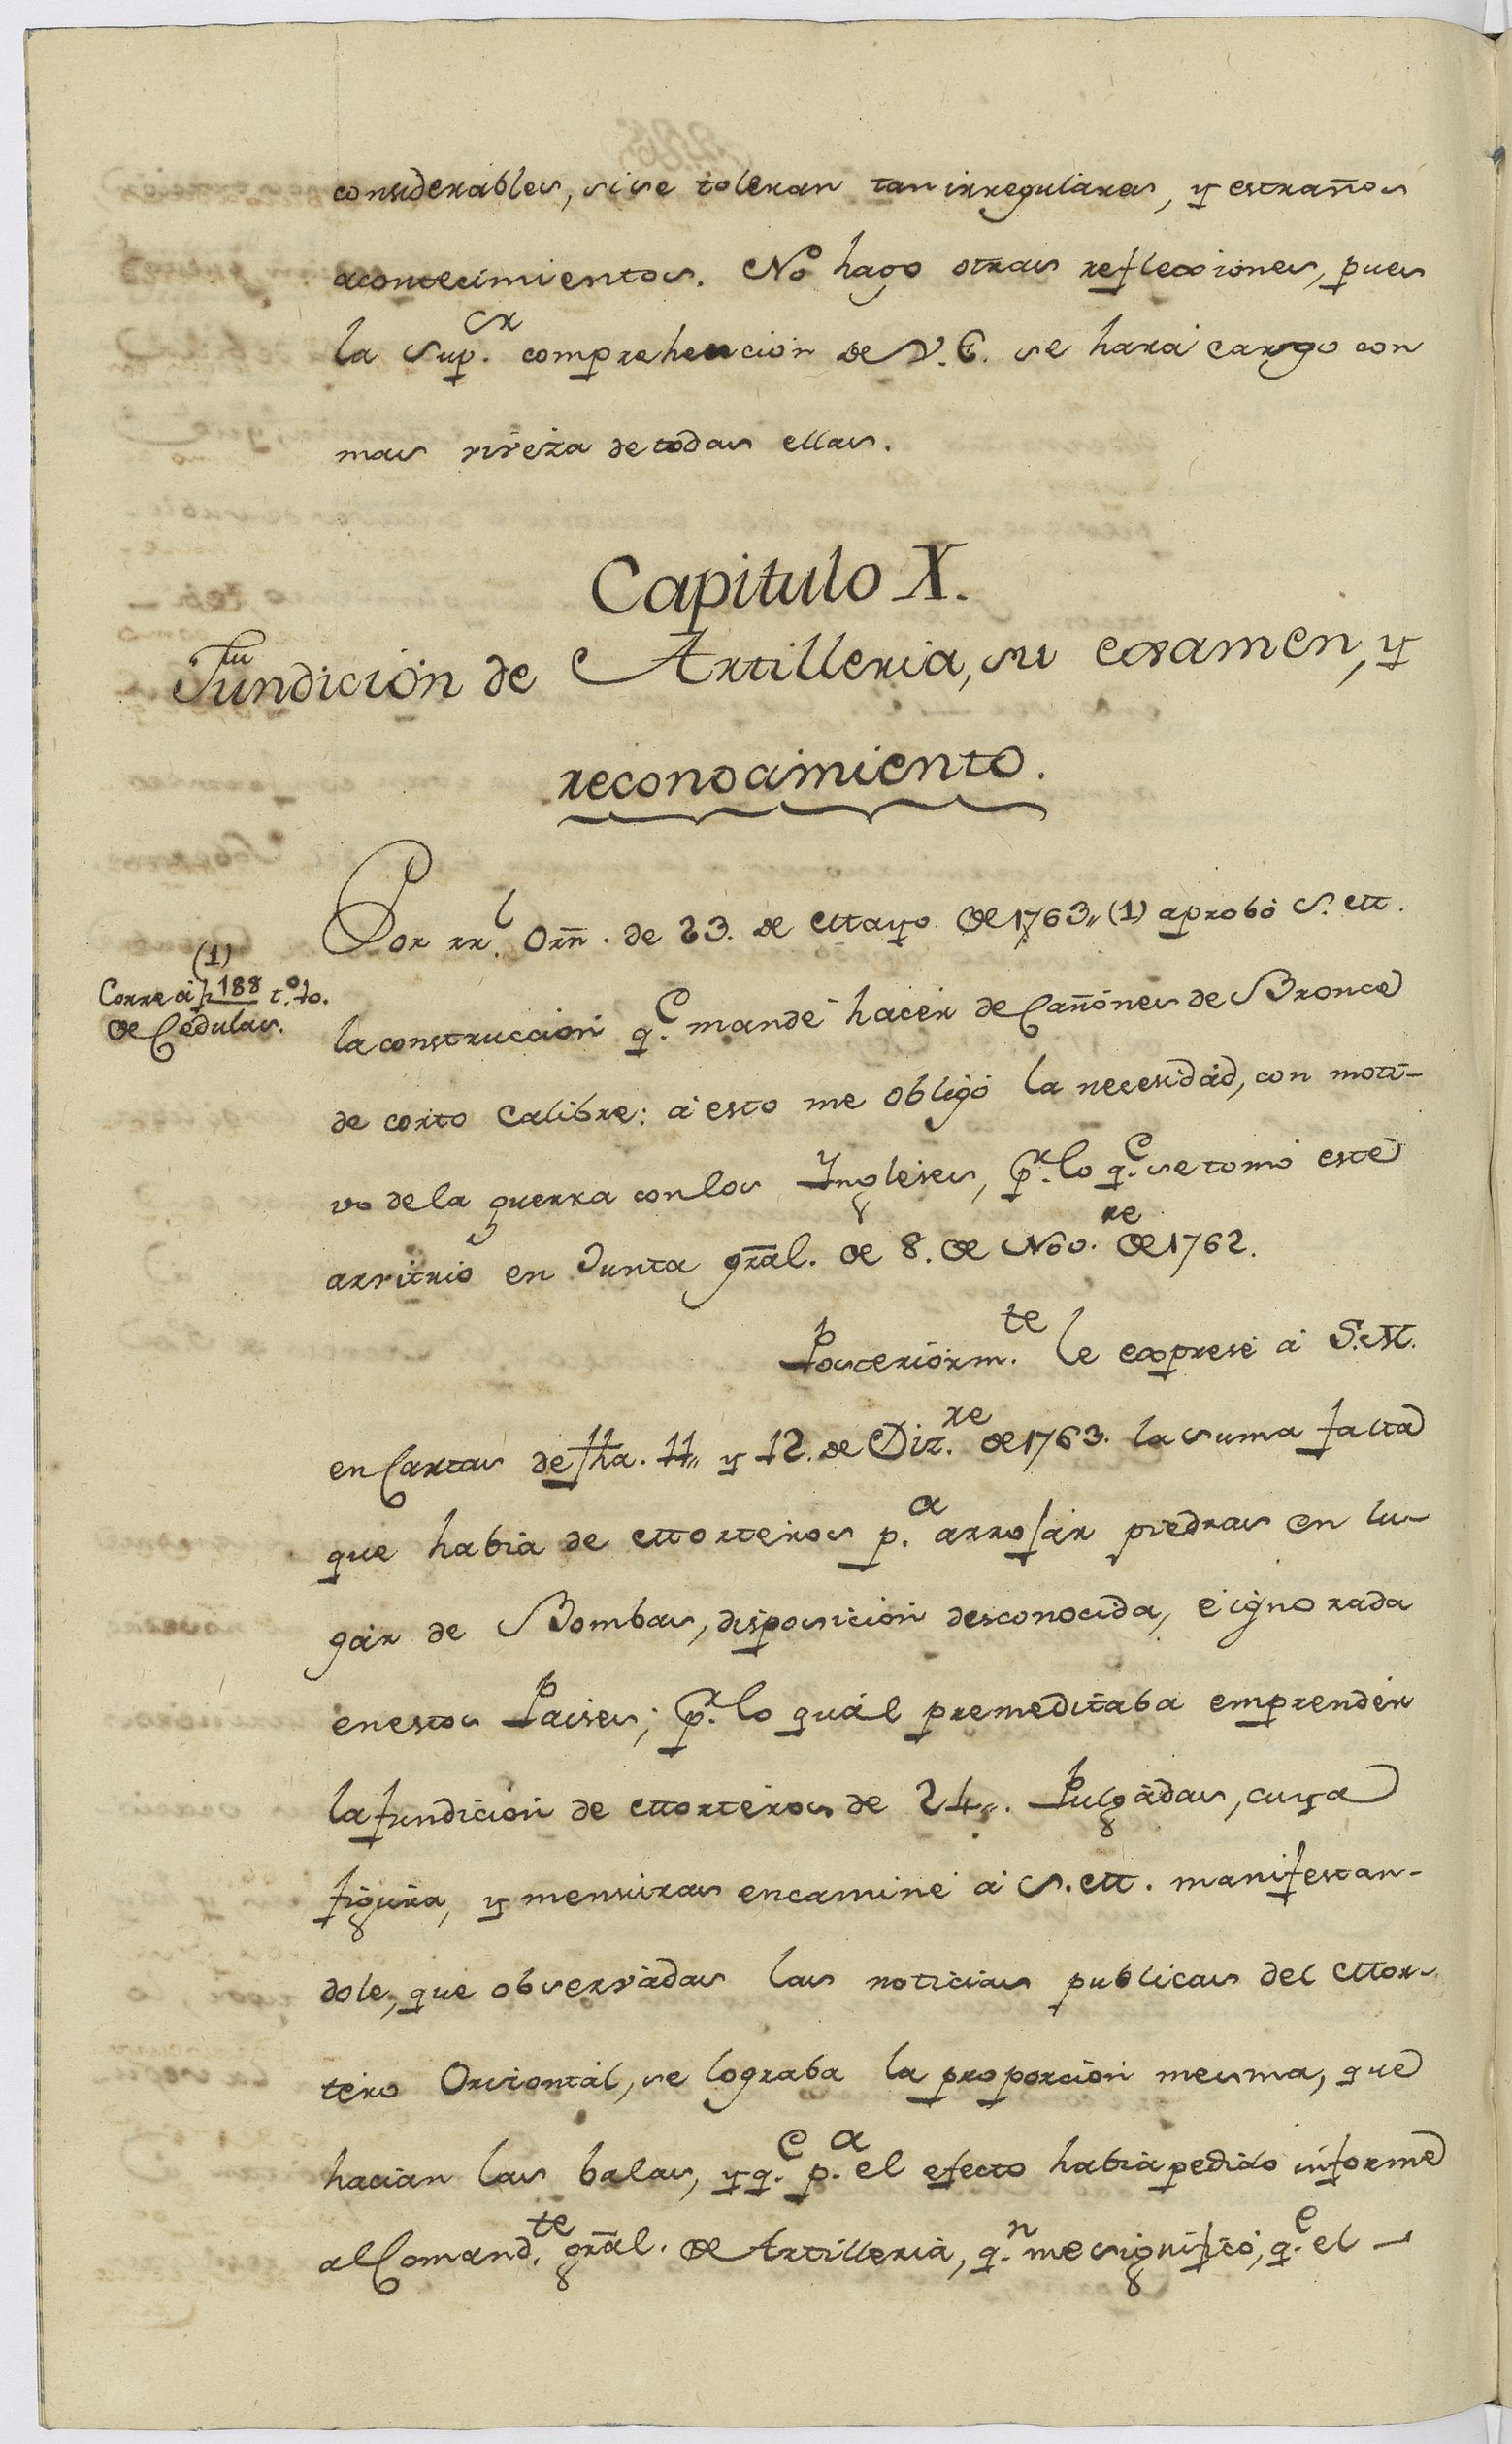 considerables, si se toleran tan irregulares, y estraños
acontecimientos. No hago otras reflecxiones, pues
la Sup.ᵉʳ comprehencion de V.E. se hará cargo con
mas viveza de todas ellas.
Capitulo X.
Fundicion de Artilleria, su examen, y
reconocimiento.
Por rr.ˡ Orñ. de 23. de Mayo de 1763,, (1) aprobó S.M.
(1)
Corre á f. 188 t.º 10.
de Cedulas.
la construccion q.ᵉ mandé hacer de Cañones de Bronce
de corto calibre: á esto me obligó la necesidad, con moti-
vo de la guerra con los Ingleses, p.ʳ lo q.ᵉ se tomó este
arvitrio en Junta gr̃al. de 8. de Nov.ʳᵉ de 1762.
Posteriorm.ᵗᵉ le exprese á S.M.
en Cartas de fha. 11,, y 12. de Diz.ʳᵉ de 1763. la suma falta
que habia de Morteros p.ᵃ arrojar piedras en lu-
gar de Bombas, disposicion desconocida, é ignorada
en estos Paises; p.ʳ lo quál premeditaba emprender
la fundicion de Morteros de 24,,. Pulgadas, cuya
figura, y mensuras encaminé á S.M. manifestan-
dole, que observadas las noticias publicas del Mor-
tero Orisontal, se lograba la proporcion mesma, que
hacian las balas, y q.ᵉ p.ᵃ el efecto habia pedido informe
al Comand.ᵗᵉ gr̃al. de Artilleria, q.ⁿ me significó, q.ᵉ el –